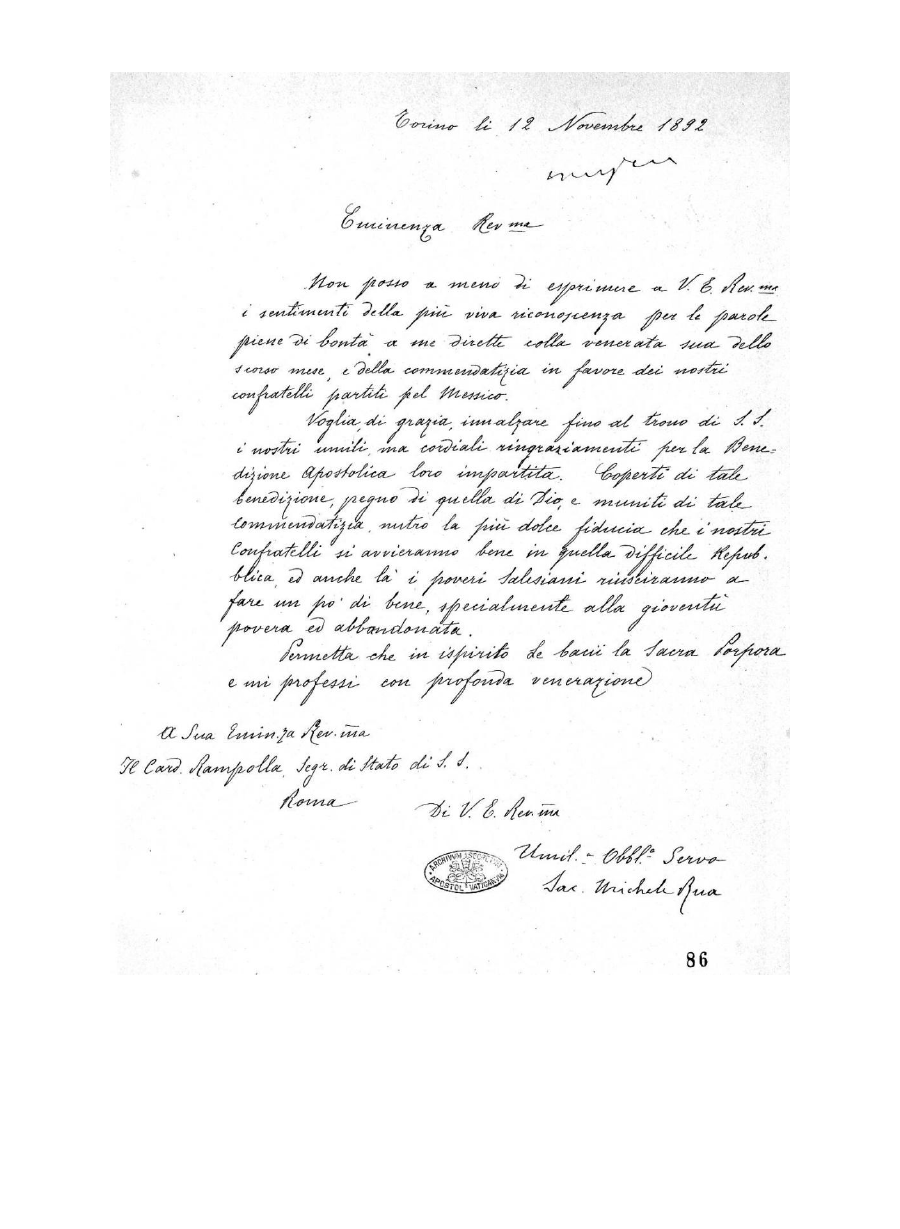 Torino li 12 Novembre 1892
Eminenza Rev.ma
Non posso a meno di esprimere a V. E. Rev.ma
i sentimenti della più viva riconoscenza per le parole
piene di bontà a me dirette colla venerata sua dello
scorso mese, e della commendatizia in favore dei nostri
confratelli partiti pel Messico.
Voglia, di grazia, innalzare fino al trono di S. S.
i nostri umili, ma cordiali ringraziamenti per la Bene=
dizione Apostolica loro impartita. Coperti di tale
benedizione, pegno di quella di Dio, e muniti di tale
commendatizia, nutro la più dolce fiducia che i nostri
Confratelli si avvieranno bene in quella difficile Repub.
blica, ed anche là i poveri Salesiani riusciranno a
fare un po' di bene, specialmente alla gioventù
povera ed abbandonata.
Permetta che in ispirito Le bacii la Sacra Porpora
e mi professi con profonda venerazione
A Sua Emin.za Rev.ma
Il Card. Rampolla, Segr. di Stato di S. S.
Roma
Di V. E. Rev.ma
Umil.o Obbl.o Servo
Sac. Michele Rua
ARCHIVUM SECRETUM
APOSTOL. VATICANUM
86